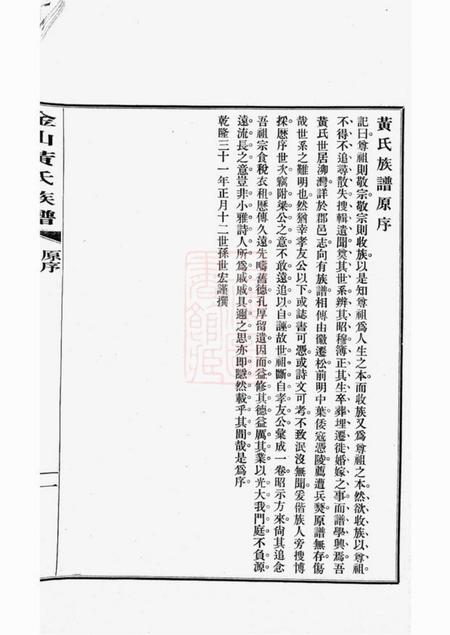 黃氏族譜原序
記曰尊祖則敬宗敬宗則收族以是知尊祖爲人生之本而收族又爲尊祖之本然欲收族以尊祖
不得不追尋散失搜輯遺聞奠其世系辨其昭穆簿正其生卒葬埋遷徙婚嫁之事而譜學興焉吾
黃氏世居泖灣詳於郡邑志向有族譜相傳由徽遷松前明中葉倭寇憑陵薦遭兵燹原譜無存傷
哉世系之難明也然猶幸孝友公以下或誌書可憑或詩文可考不致泯沒無聞爰偕族人旁搜博
採歷序世次竊附梁公之意不敢遠追以自誣故世祖斷自孝友公彙成一卷昭示方來尙其追念
吾祖宗食稅衣租歷傳久遠先疇舊德孔厚留遺因而益修其德益厲其業以光大我門庭不負源
遠流長之意豈非小雅詩人所爲戚戚具邇之思亦卽隱然載乎其間哉是爲序
乾隆三十一年正月十二世孫世宏謹撰
金山黃氏族譜
原序
一